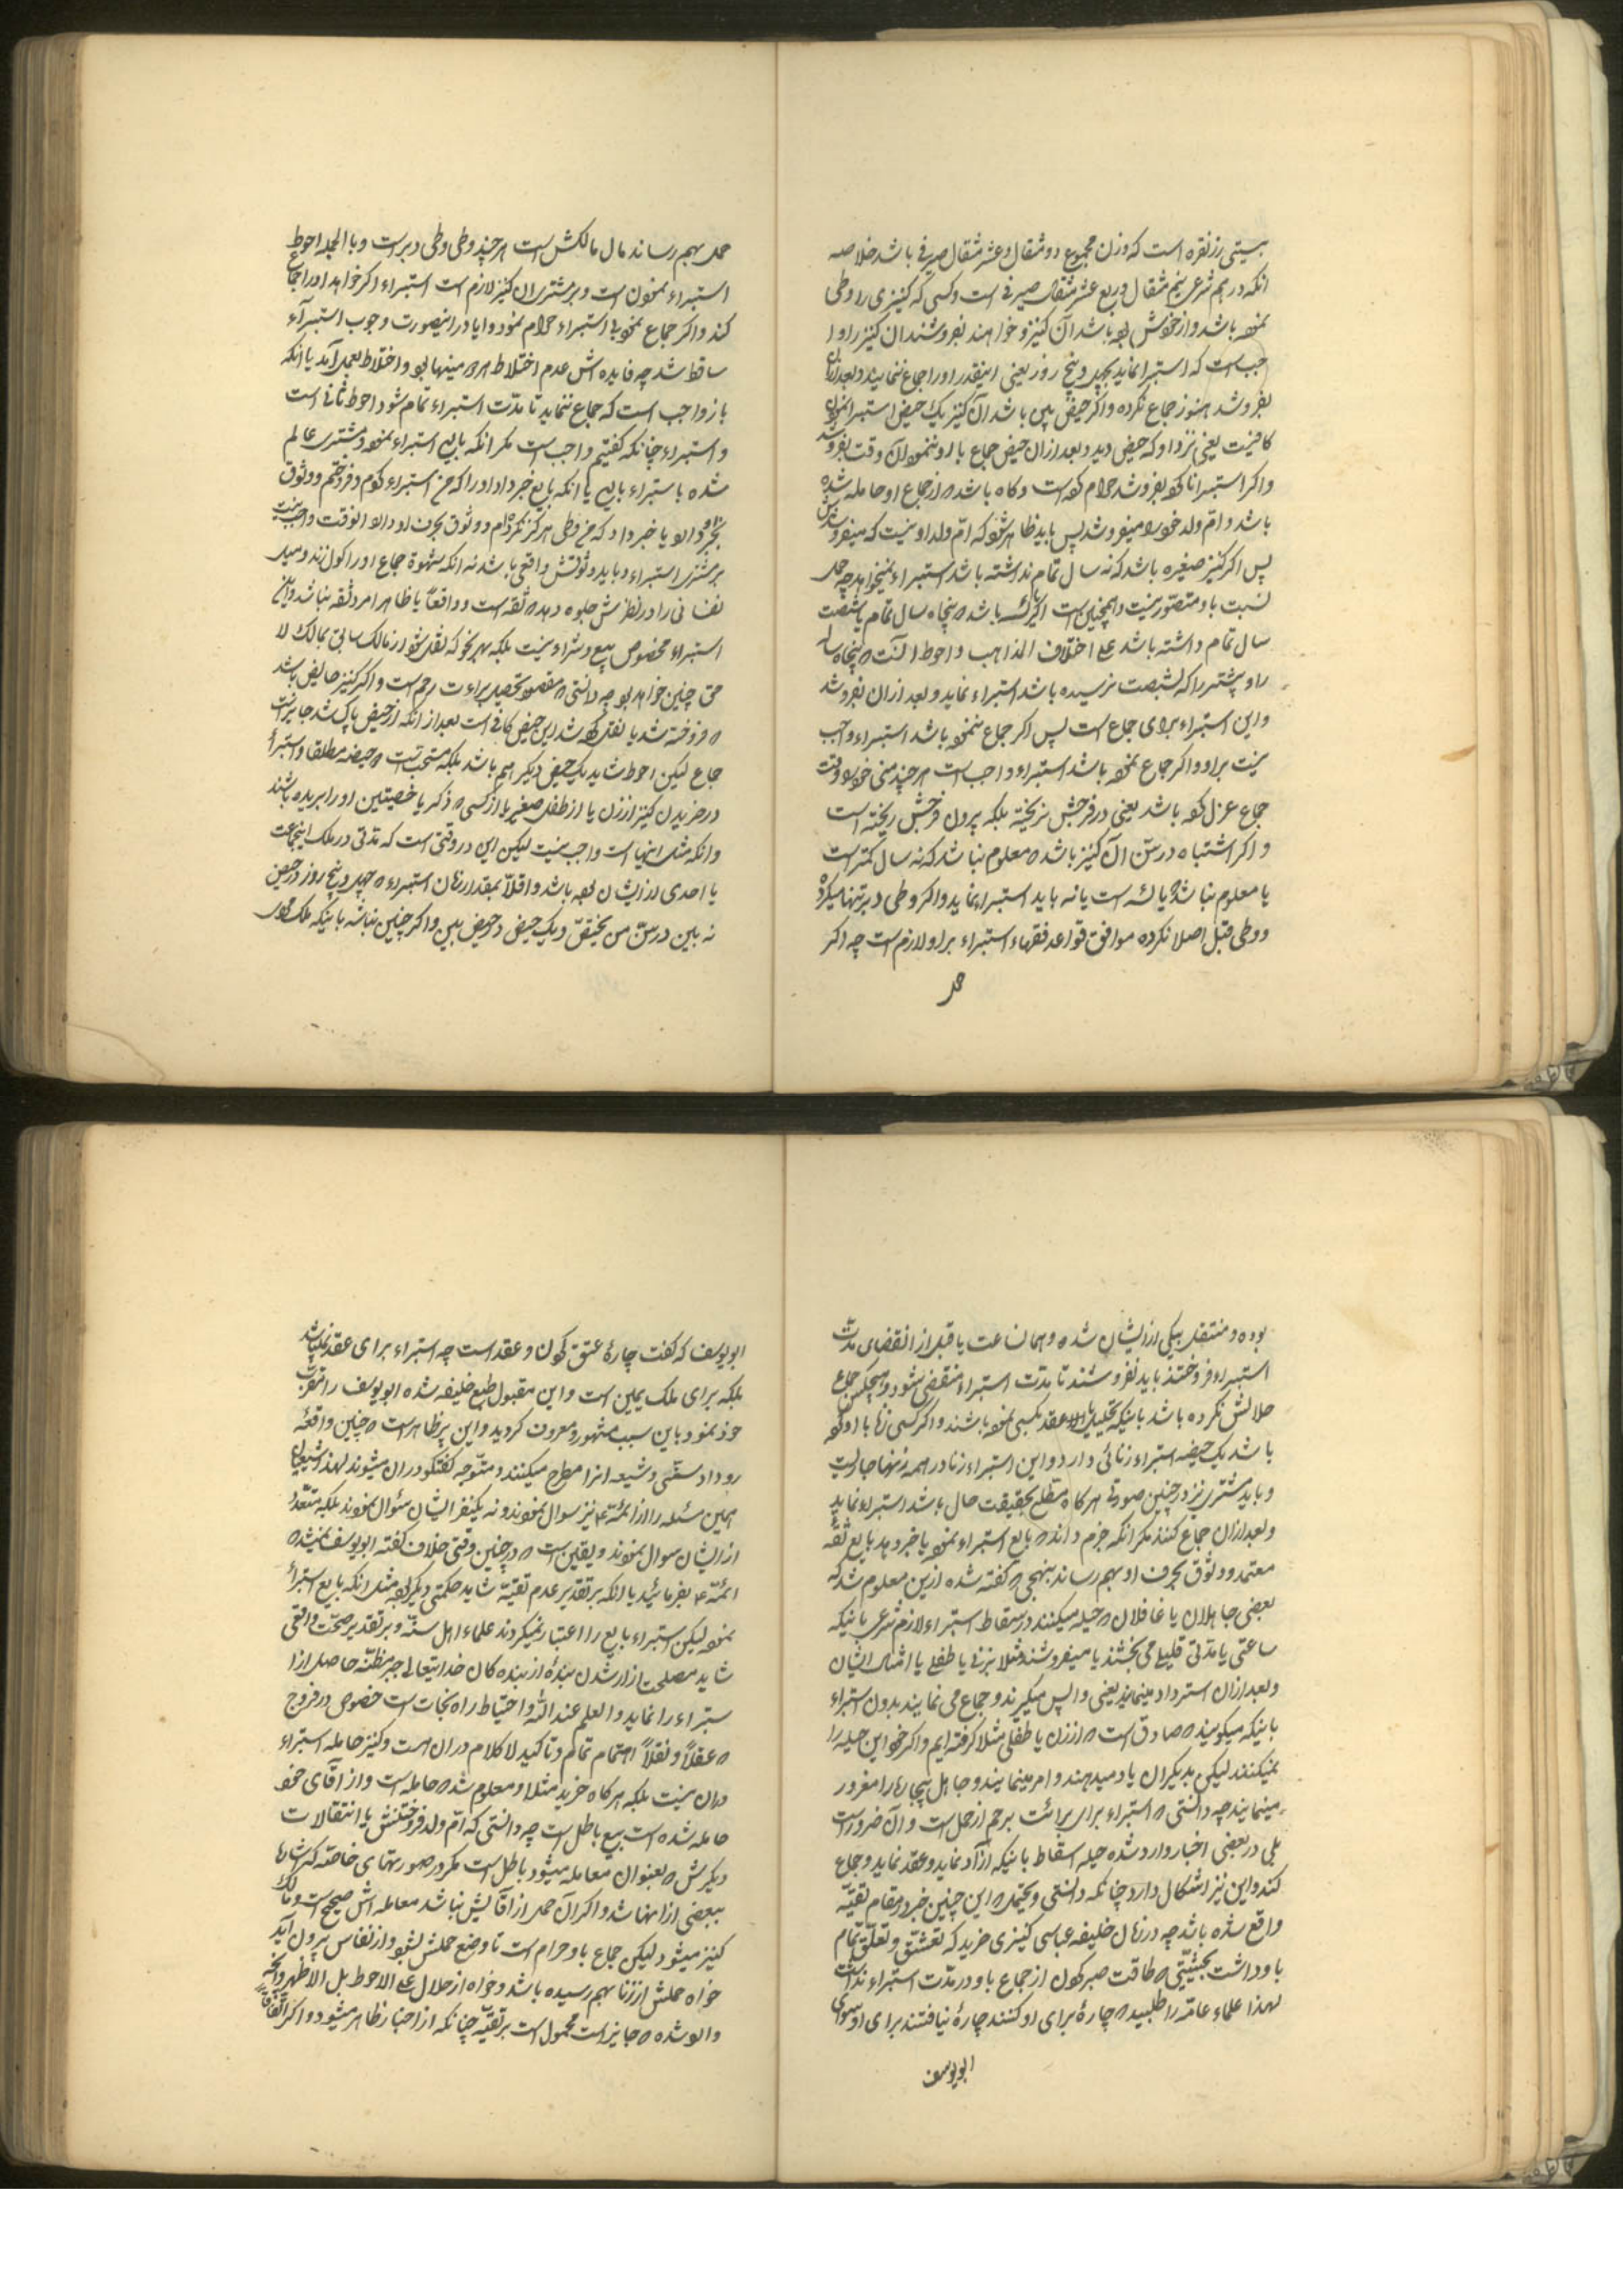 بسیتی رز نقره است که وزن مجموع دو مثقال و عشر مثقال صیرفی باشد خلاصه
انکه درهم شرعی نیم مثقال و ربع عشر مثقال صیرفی است و کسی که کنیزی را وطی
نموده باشد و از خودش بوده باشد آن کنیز و خواهند بفروشند ان کنیز را وا
جب است که استبرا نماید بچهل و پنج روز یعنی اینقدر او را جماع ننمایند و بعد ازان
بفروشد هنوز جماع نکرده و اکر حیض بین باشد آن کنیز یک حیض استبرا نمودن
کافیست یعنی نزد او که حیض دید و بعد ازان حیض جماع با او ننموده آن وقت بفروشد
و اکر استبرا ناکرده بفروشد حرام کرده است و کاه باشد که از جماع او حامله شده
باشد و ام ولد خود را میفروشد پس باید ظاهر شود که ام ولد او نیست که میفروشدش
پس اکر کنیز صغیره باشد که نه سال تمام نداشته باشد استبراء نمیخواهد چه حمل
نسبت باو متصور نیست و همچنین است اکر یائسه باشد که پنجاه سال تمام یا شصت
سال تمام داشته باشد علی اختلاف المذاهب و احوط آنست که پنجاه ساله
را و بیشتر را که بشصت نرسیده باشد استبراء نماید و بعد ازان بفروشد
و این استبراء برای جماع است پس اکر جماع ننموده باشد استبراء واجب
نیست بر او و اکر جماع نموده باشد استبراء واجب است هر چند منی خود را وقت
جماع عزل کرده باشد یعنی در فرجش نریخته بلکه بیرون فرجش ریخته است
و اکر اشتباه در سن آن کنیز باشد که معلوم نباشد که نه سال کمتر است
یا معلوم نباشد که یائسه است یا نه باید استبراء نماید و اکر وطی دبر تنها میکرده
و وطی قبل اصلا نکرده موافق قواعد فقهاء استبراء بر او لازم است چه اکر
حمل
حمل بهم رساند مال مالکش است هر چند وطی وطی دبر است و بالجمله احوط
استبراء نمودن است و بر مشتری ان کنیز لازم است استبراء اکر خواهد او را جماع
کند و اکر جماع نمود بی استبراء حرام نمود و ایا در اینصورت وجوب استبرآء
ساقط شد چه فایده اش عدم اختلاط میاه بود و اختلاط بعمل آمد یا انکه
باز واجب است که جماع ننماید تا مدت استبراء تمام شود احوط ثانی است
و استبراء چنانکه کفتیم واجب است مکر انکه بایع استبراء نموده و مشتری عالم
شده باستبراء بایع یا انکه بایع خبر داد او را که من استبراء کردم و فروختم و وثوق
بخبر او دارد یا خبر داد که من وطی هرکز نکرده ام و وثوق بحرف او دارد انوقت واجب نیست
بر مشتری استبراء و باید وثوقش واقعی باشد نه انکه شهوة جماع او را کول زند و میل
نفسانی را در نظرش جلوه دهد که ثقه است و واقعاً یا ظاهرا مرد ثقه نباشد و این
استبراء مخصوص بیع و شرا نیست بلکه بهر نحو که نقل شود از مالک سابق بمالک لا
حق چنین خواهد بود چه دانستی که مقصود تحصیل براءت رحم است و اکر کنیز حایض باشد
که فروخته شد یا نقل کرده شد این حیض کافی است بعد از انکه از حیض پاک شد جایز است
جماع لیکن احوط شاید یک حیض دیکر هم باشد بلکه مستحب است دو حیضه مطلقا و استبرأ
در خریدن کنیز از زن یا از طفل صغیر یا از کسی که ذکر یا خصیتین او را بریده باشند
و انکه مثل اینها است واجب نیست لیکن این در وقتی است که مدتی در ملک اینجماعت
یا احدی از ایشان بوده باشد و اقلاً بمقدار زمان استبراء که چهل و پنج روز در حیض
نه بین در سن من تحیض و یک حیض در حیض بین و اکر چنین نباشد باینکه ملک
بوده و منتقل بیکی از ایشان شده و همان ساعت یا قبل از انقضای مدت
استبراء فروختند باید نفروشند تا مدت استبراء منقضی شود و هیچکس جماع
حلالش نکرده باشد باینکه تحلیل یا عقد بکسی نموده باشند و اکر کسی زنا با او کرده
باشد یک حیضه استبراء زنائی دارد و این استبراء زنا در همه زنها جاریست
و باید مشتری نیز در چنین صورتی هر کاه مطلع بحقیقت حال باشد استبراء نماید
و بعد ازان جماع کند مکر انکه جزم داند که بایع استبراء نموده یا خبر دهد بایع ثقه
معتمد و وثوق بحرف او بهم رساند بنهجی که کفته شد و ازین معلوم شد که
بعضی جاهلان یا غافلان که حیله میکنند در سقاط استبراء لازم شرعی باینکه
ساعتی یا مدتی قلیلی می بخشند یا میفروشند مثلا بزنی یا طفلی یا امثال ایشان
و بعد ازان استرداد مینمایند یعنی واپس میکیرند و جماع می نمایند بدون استبراء
باینکه میکویند که صادق است که از زن یا طفلی مثلا کرفته ایم و اکر خود این حیله را
نمیکنند لیکن بدیکران یاد میدهند و امر مینمایند و جاهل بیچاره را مغرور
مینمایند چه دانستی که استبراء برای برائت رحم از حمل است و آن ضرور است
بلی در بعضی اخبار وارد شده حیله اسقاط باینکه آزاد نماید و عقد نماید و جماع
کند و این نیز اشکال دارد چنانکه دانستی و محتمل که این چنین خبر در مقام تقیّه
واقع شده باشد چه در زمان خلیفه عباسی کنیزی خرید که تعشّق و تعلّق تمام
باو داشت بحیثیتی که طاقت صبر کردن از جماع باو در مدّت استبراء نداشت
لهذا علماء عامّه را طلبید که چارهٔ برای او کنند چارهٔ نیافتند برای او سوای
ابویوسف
ابویوسف که کفت چارهٔ عتق کردن و عقد است چه استبراء برای عقد نمیباشد
بلکه برای ملک یمین است و این مقبول طبع خلیفه شده ابویوسف را مقرب
خود نمود و باین سبب مشهور و معروف کردید و این پر ظاهر است که چنین واقعهٔ
رو داد سنّی و شیعه انرا مطرح میکنند و متوجه کفتکو دران میشوند لهذا شیعیان
همین مسئله را از ائمّه ع نیز سوال نمودند و نه یکنفر ایشان سئوال نمودند بلکه متعدّد
از ایشان سوال نمودند و یقین است که در چنین وقتی خلاف کفته ابویوسف نمیشد که
ائمّه ع بفرمائید یا انکه بر تقدیر عدم تقیّه شاید حکمتی دیکر بوده مثل انکه بایع استبرأ
نموده لیکن استبراء بایع را اعتبار نمیکردند علماء اهل سنّة و بر تقدیر صحّت واقعی
شاید مصلحت ازاد شدن بندهٔ از بنده کان خدایتعالی جبر مظنّه حاصل از ا
ستبراء را نماید و العلم عند اللّه و احتیاط راه نجات است خصوص در فروج
که عقلاً و نقلاً اهتمام تمام و تاکید لا کلام دران هست و کنیز حامله استبراء
دران نیست بلکه هر کاه خرید مثلا و معلوم شد که حامله است و از آقای خود
حامله شده است بیع باطل است چه دانستی که امّ ولد فروختنش یا انتقالات
دیکرش که بعنوان معامله میشود باطل است مکر در صورتهای خاصّه که اشارها
ببعضی ازانها شد و اکر آن حمل از آقایش نباشد معامله اش صحیح است و مالک
کنیز میشود لیکن جماع باو حرام است تا وضع حملش بشود و از نفاس بیرون آید
خواه حملش از زنا بهم رسیده باشد و خواه از حلال علی الاحوط بل الاظهر و انچه
وارد شده که جایز است محمول است بر تقیّه چنانکه از اخبار ظاهر میشود و اکر اتفاقاً